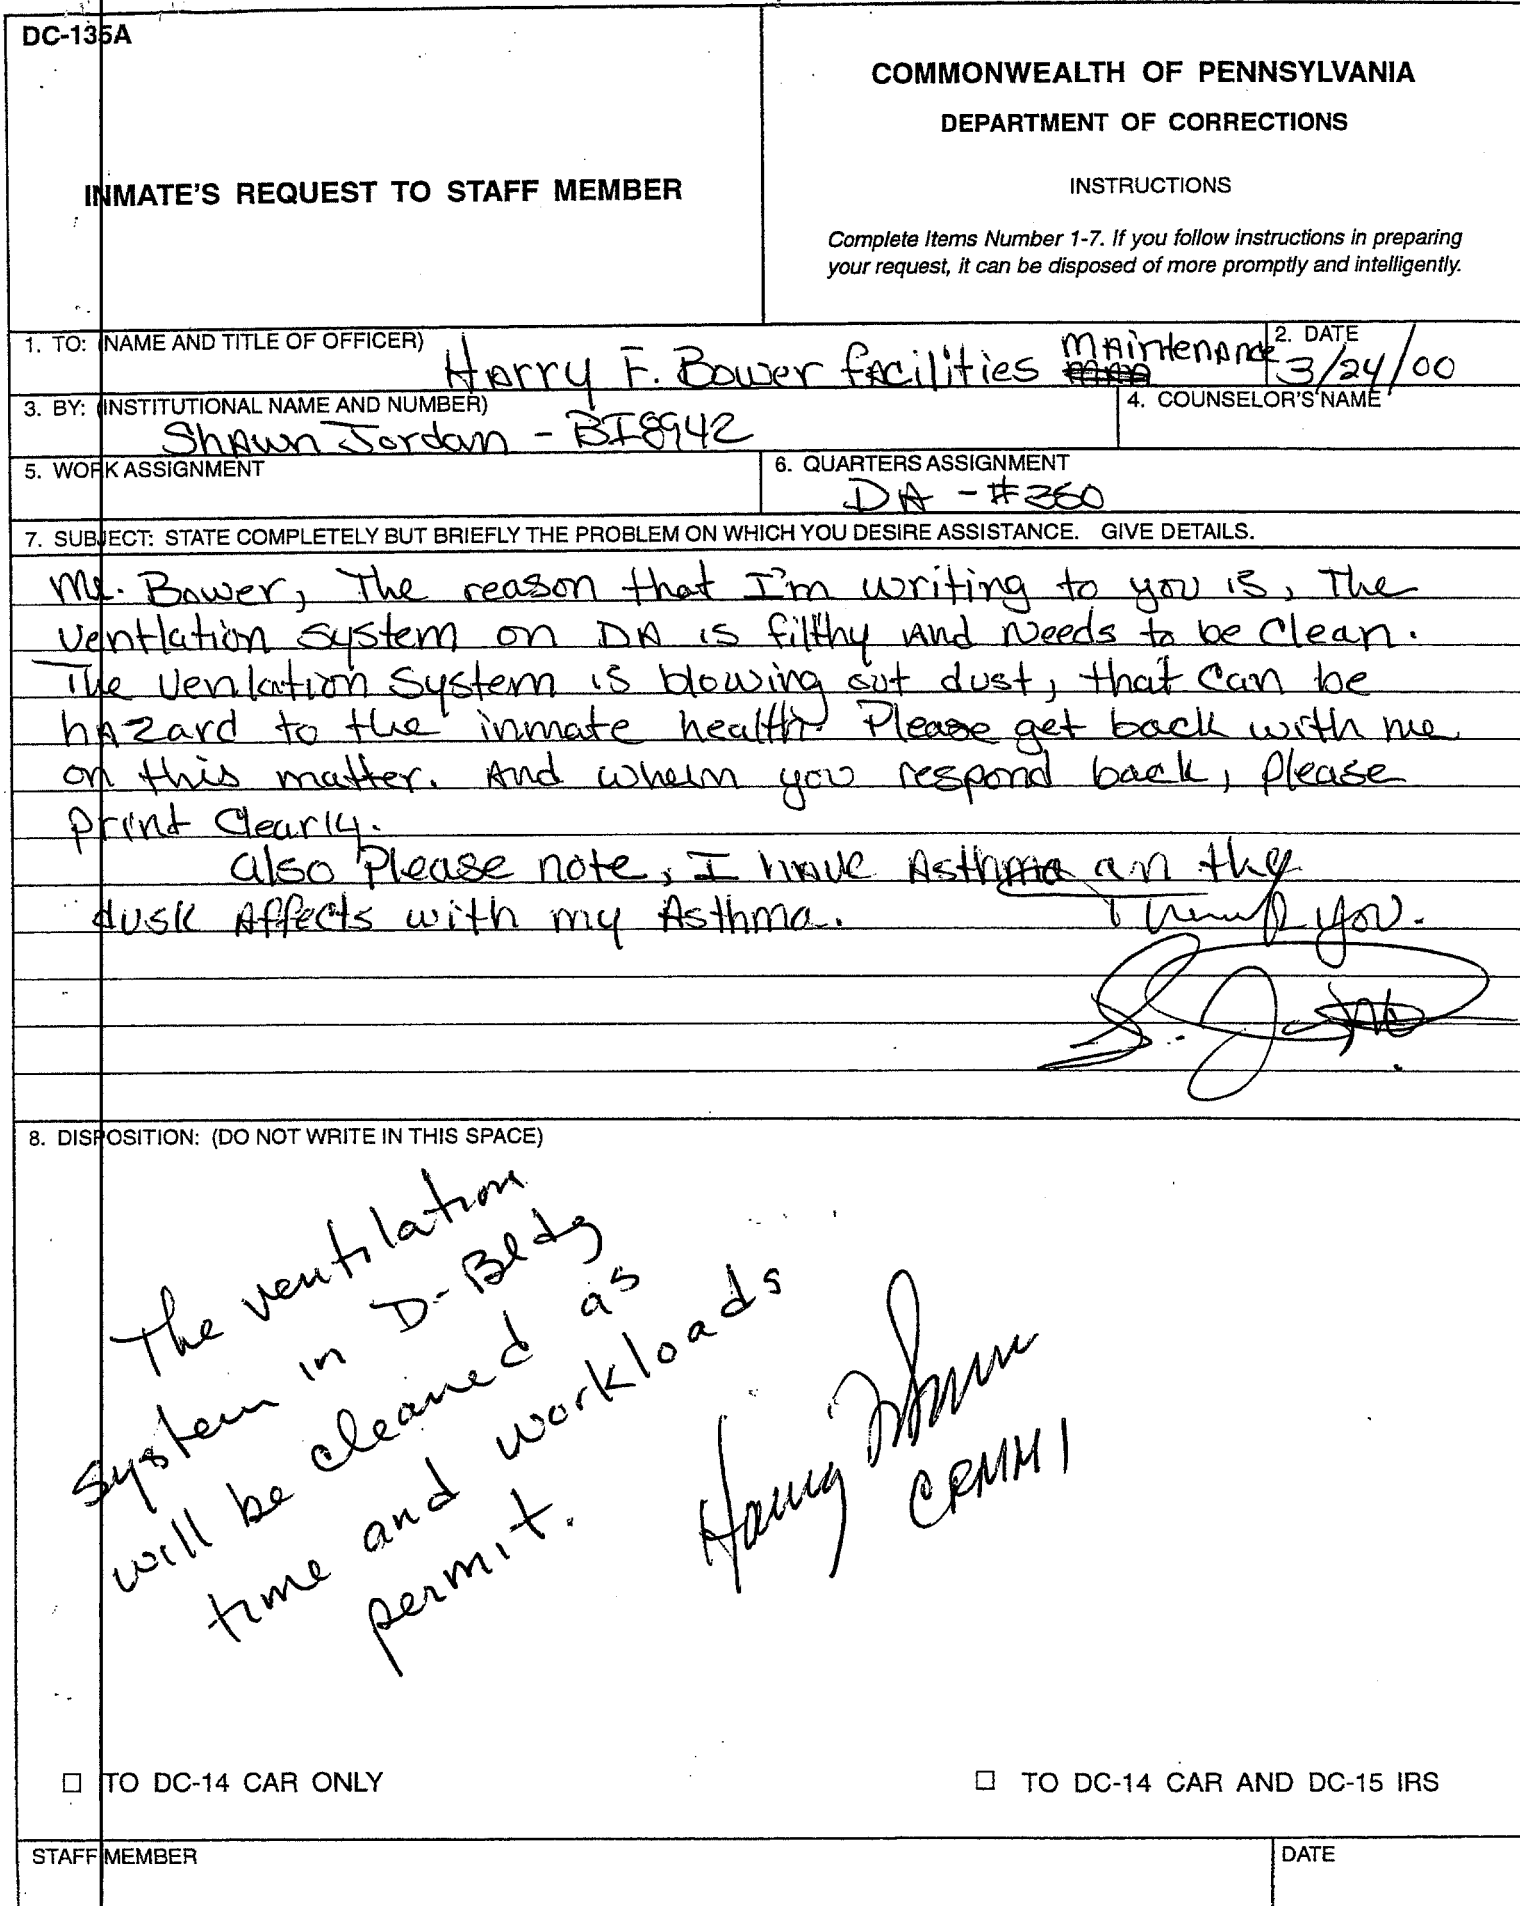 DC-135A
COMMONWEALTH OF PENNSYLVANIA
DEPARTMENT OF CORRECTIONS
INMATE'S REQUEST TO STAFF MEMBER
INSTRUCTIONS
Complete Items Number 1-7. If you follow instructions in preparing
your request, it can be disposed of more promptly and intelligently.
1. TO: (NAME AND TITLE OF OFFICER) Harry F. Bower facilities Maintenance
2. DATE 3/24/00
3. BY: (INSTITUTIONAL NAME AND NUMBER) Shawn Jordan - BI8942
4. COUNSELOR'S NAME
5. WORK ASSIGNMENT
6. QUARTERS ASSIGNMENT DA - #360
7. SUBJECT: STATE COMPLETELY BUT BRIEFLY THE PROBLEM ON WHICH YOU DESIRE ASSISTANCE. GIVE DETAILS.
Mr. Bower, The reason that I'm writing to you is, The
ventlation system on DA is filthy And Needs to be Clean.
The Venlation System is blowing out dust, that can be
hazard to the inmate health. Please get back with me
on this matter. And whein you respond back, please
print Clearly.
also Please note, I have Asthma an the
dusk Affects with my Asthma. Thank you.
S. Jordan
8. DISPOSITION: (DO NOT WRITE IN THIS SPACE)
The ventilation
system in D-Bldg
will be cleaned as
time and workloads
permit.
Harry Bower
CRMM1
☐ TO DC-14 CAR ONLY
☐ TO DC-14 CAR AND DC-15 IRS
STAFF MEMBER
DATE